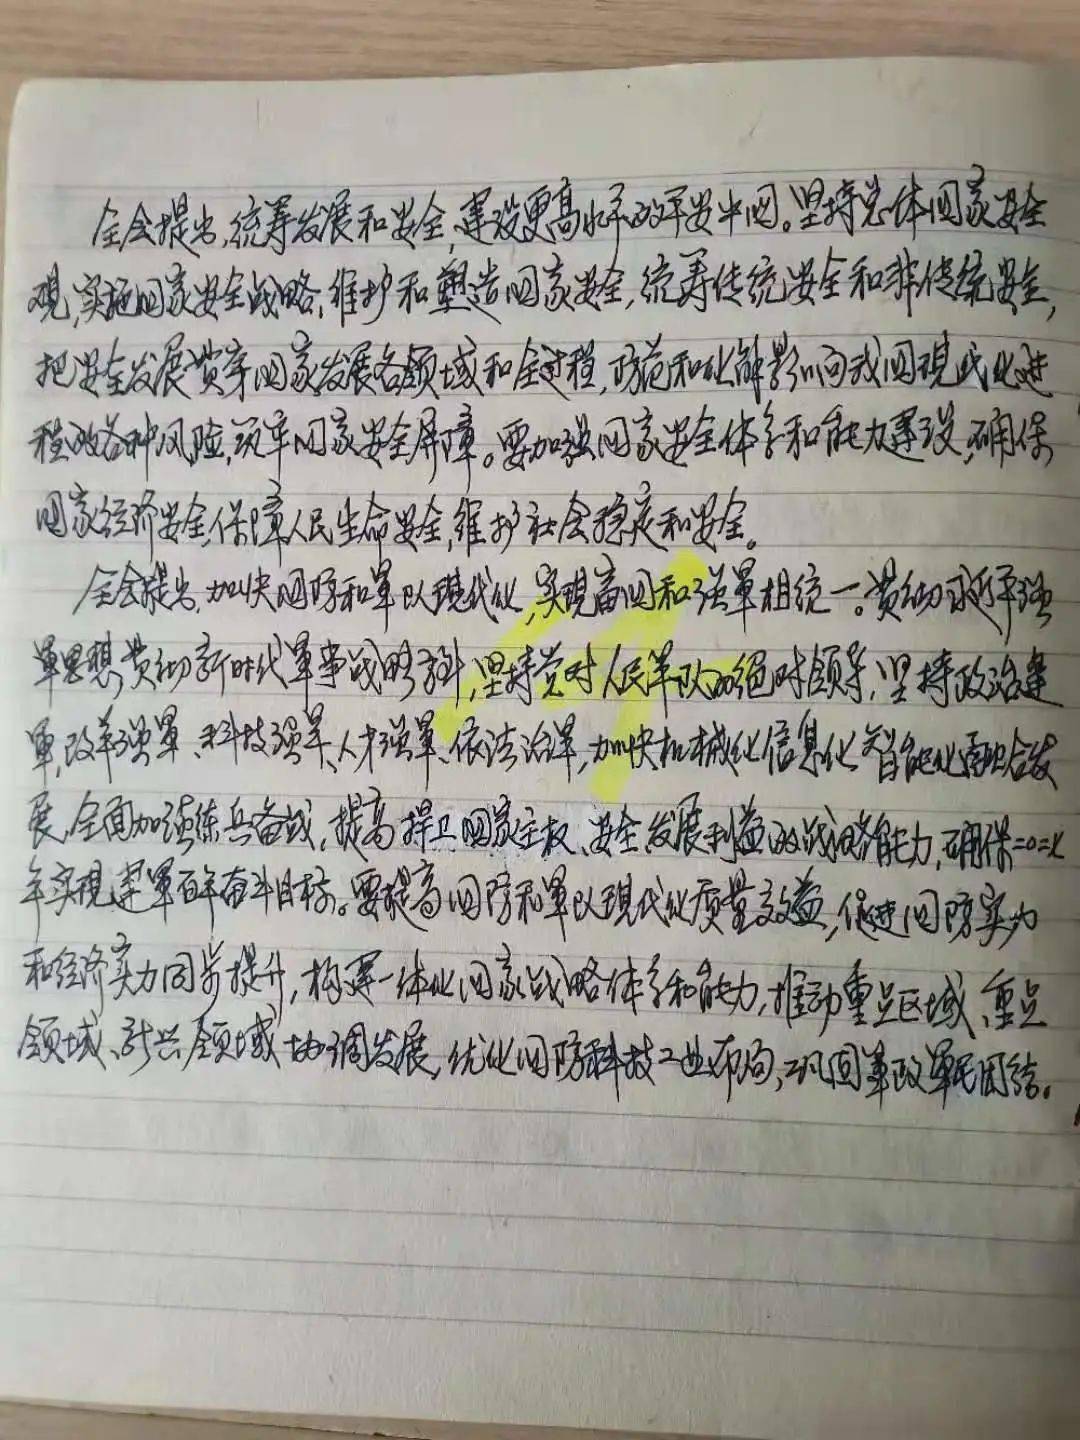 全会提出,统筹发展和安全,建设更高水平的平安中国。坚持总体国家安全
观,实施国家安全战略,维护和塑造国家安全,统筹传统安全和非传统安全,
把安全发展贯穿国家发展各领域和全过程,防范和化解影响我国现代化进
程的各种风险,筑牢国家安全屏障。要加强国家安全体系和能力建设,确保
国家经济安全,保障人民生命安全,维护社会稳定和安全。
全会提出,加快国防和军队现代化,实现富国和强军相统一。贯彻习近平强
军思想,贯彻新时代军事战略方针,坚持党对人民军队的绝对领导,坚持政治建
军,改革强军、科技强军、人才强军、依法治军,加快机械化信息化智能化融合发
展,全面加强练兵备战,提高捍卫国家主权、安全、发展利益的战略能力,确保二〇二七
年实现建军百年奋斗目标。要提高国防和军队现代化质量效益,促进国防实力
和经济实力同步提升,构建一体化国家战略体系和能力,推动重点区域、重点
领域、新兴领域协调发展,优化国防科技工业布局,巩固军政军民团结。